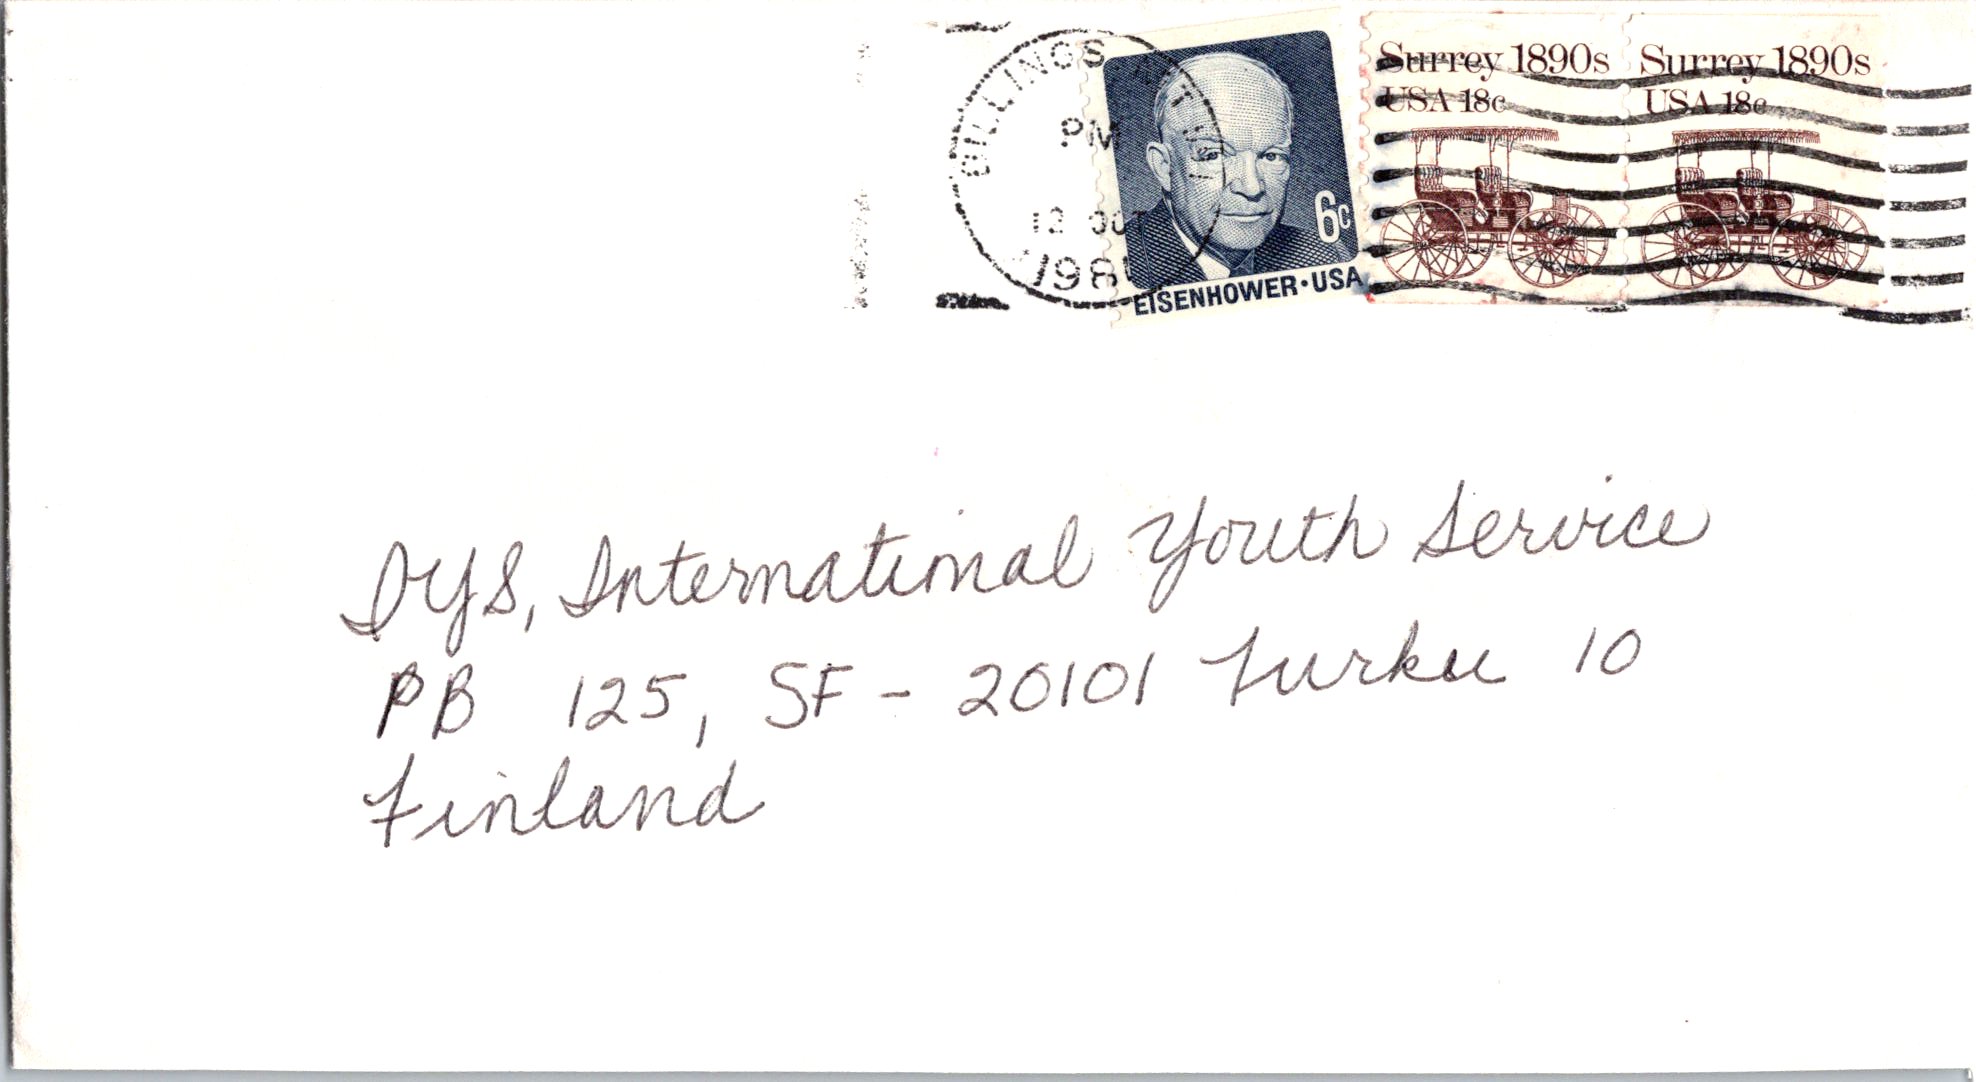 BILLINGS, MT
PM
12 OCT
198
6c
EISENHOWER·USA
Surrey 1890s
USA 18c
Surrey 1890s
USA 18c
IYS, International Youth Service
PB 125, SF - 20101 Turku 10
Finland